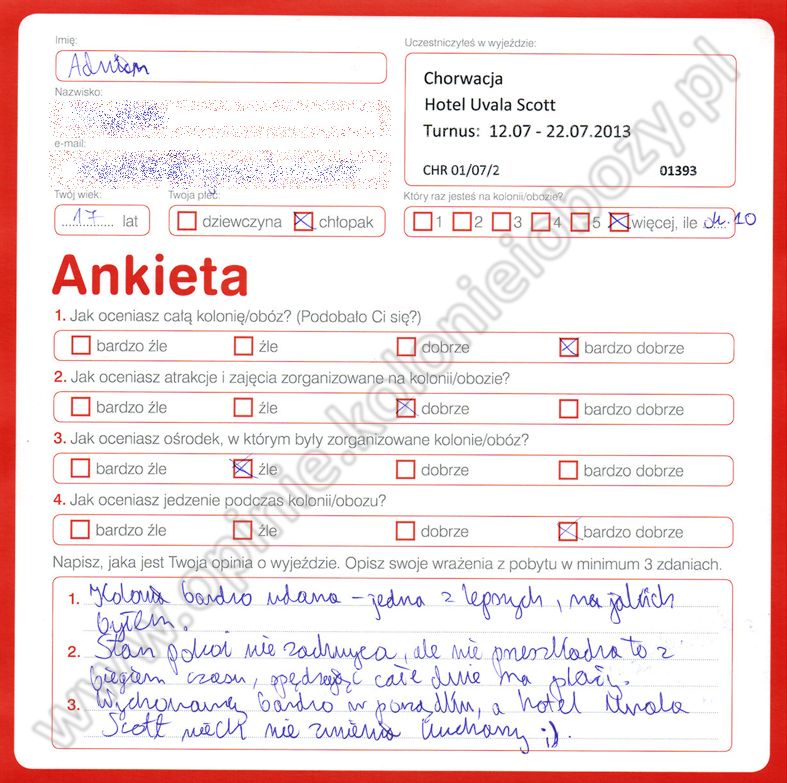 Imię:
Adrian
Uczestniczyłeś w wyjeździe:
Chorwacja
Hotel Uvala Scott
Turnus: 12.07 - 22.07.2013
CHR 01/07/2 01393
Nazwisko:
e-mail:
Twój wiek:
17 lat
Twoja płeć:
dziewczyna chłopak
Który raz jesteś na kolonii/obozie?
1 2 3 4 5 więcej, ile ok. 10
Ankieta
1. Jak oceniasz całą kolonię/obóz? (Podobało Ci się?)
bardzo źle źle dobrze bardzo dobrze
2. Jak oceniasz atrakcje i zajęcia zorganizowane na kolonii/obozie?
bardzo źle źle dobrze bardzo dobrze
3. Jak oceniasz ośrodek, w którym były zorganizowane kolonie/obóz?
bardzo źle źle dobrze bardzo dobrze
4. Jak oceniasz jedzenie podczas kolonii/obozu?
bardzo źle źle dobrze bardzo dobrze
Napisz, jaka jest Twoja opinia o wyjeździe. Opisz swoje wrażenia z pobytu w minimum 3 zdaniach.
1. Kolonia bardzo udana – jedna z lepszych, na jakich
byłem.
2. Stan pokoi nie zachwyca, ale nie przeszkadza to z
biegiem czasu, spędzając całe dnie na plaży.
3. Wychowawcy bardzo w porządku, a hotel Uvala
Scott niech nie zmienia kucharzy ;).
www.opinie.kolonieiobozy.pl